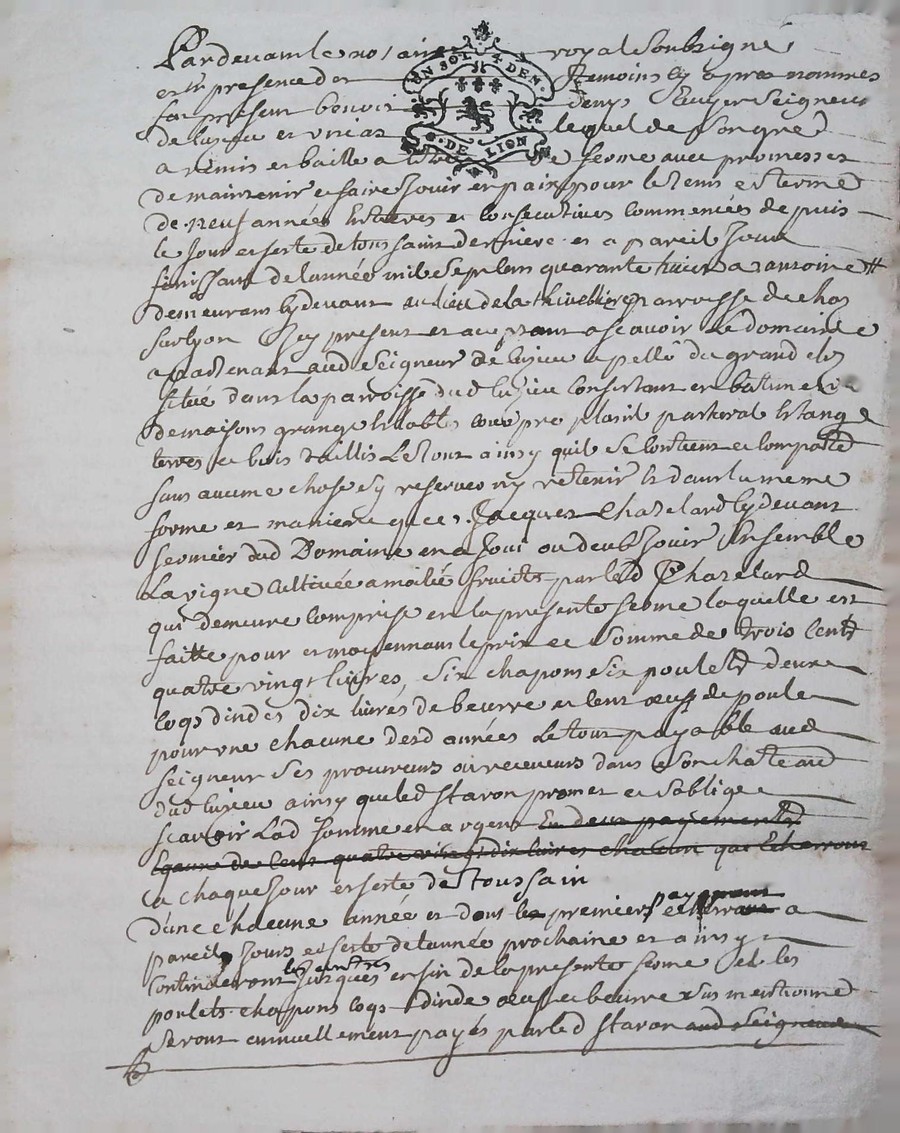 Pardevant le notaire royal soubsigné
et en presence des temoins cy apres nommés
fut present
UN SOL 4 DEN.
G. DE LION
de luzieu et unias lequel de son gré
a remis et baillé a titre de ferme avec promesses
de maintenir et faire jouir en paix pour le tems et terme
de neuf années entieres et consecutives commencées depuis
le jour et feste de toussaint derniere et a pareil jour
finissant de l'année mil sept cens quarante huict a antoine
demeurant cy devant au lieu de la parroisse de chaz
sur lyon icy present et acceptant a scavoir le domaine
apartenant aud seigneur de luzieu apellé du grand cloz
situé dans la parroisse dud luzieu consistant en batiment
de maisons grange estables cour pré plani pasheral estang
terres et bois taillis le tout ainsy quil se contient et comporte
sans aucune chose s'y reserver ny retenir et dans la meme
forme et maniere que s. Jacques Chazelard cy devant
fermier dud Domaine en a joui ou deub jouir ensemble
la vigne cultivée a moitié fruits par led Chazelard
qui demeure comprise en la presente ferme laquelle est
faitte pour et moyennant le prix et somme de trois cent
quatre vingt livres, six chapons six poulets deux
coqs dindes dix livres de beurre et cent œufs de poule
pour une chacune desd années le tout payable aud
seigneur ses procureurs ou receveurs dans son chateau
dud luzieu ainsy que led staron promet et s'oblige
scavoir lad somme en argent en deux payements
egaux de cent quatre vingt dix livres chacun que echerront
a chaque jour et feste de Toussain
d'une chacune année et dont le premier payement echerra a
pareil jour et feste de l'année prochaine et ainsy
continueront les autres jusques en fin de la presente ferme et les
poulets chapons coqs dinde œufs et beurre sus mentionné
seront annuellement payés par led staron aud seigneur